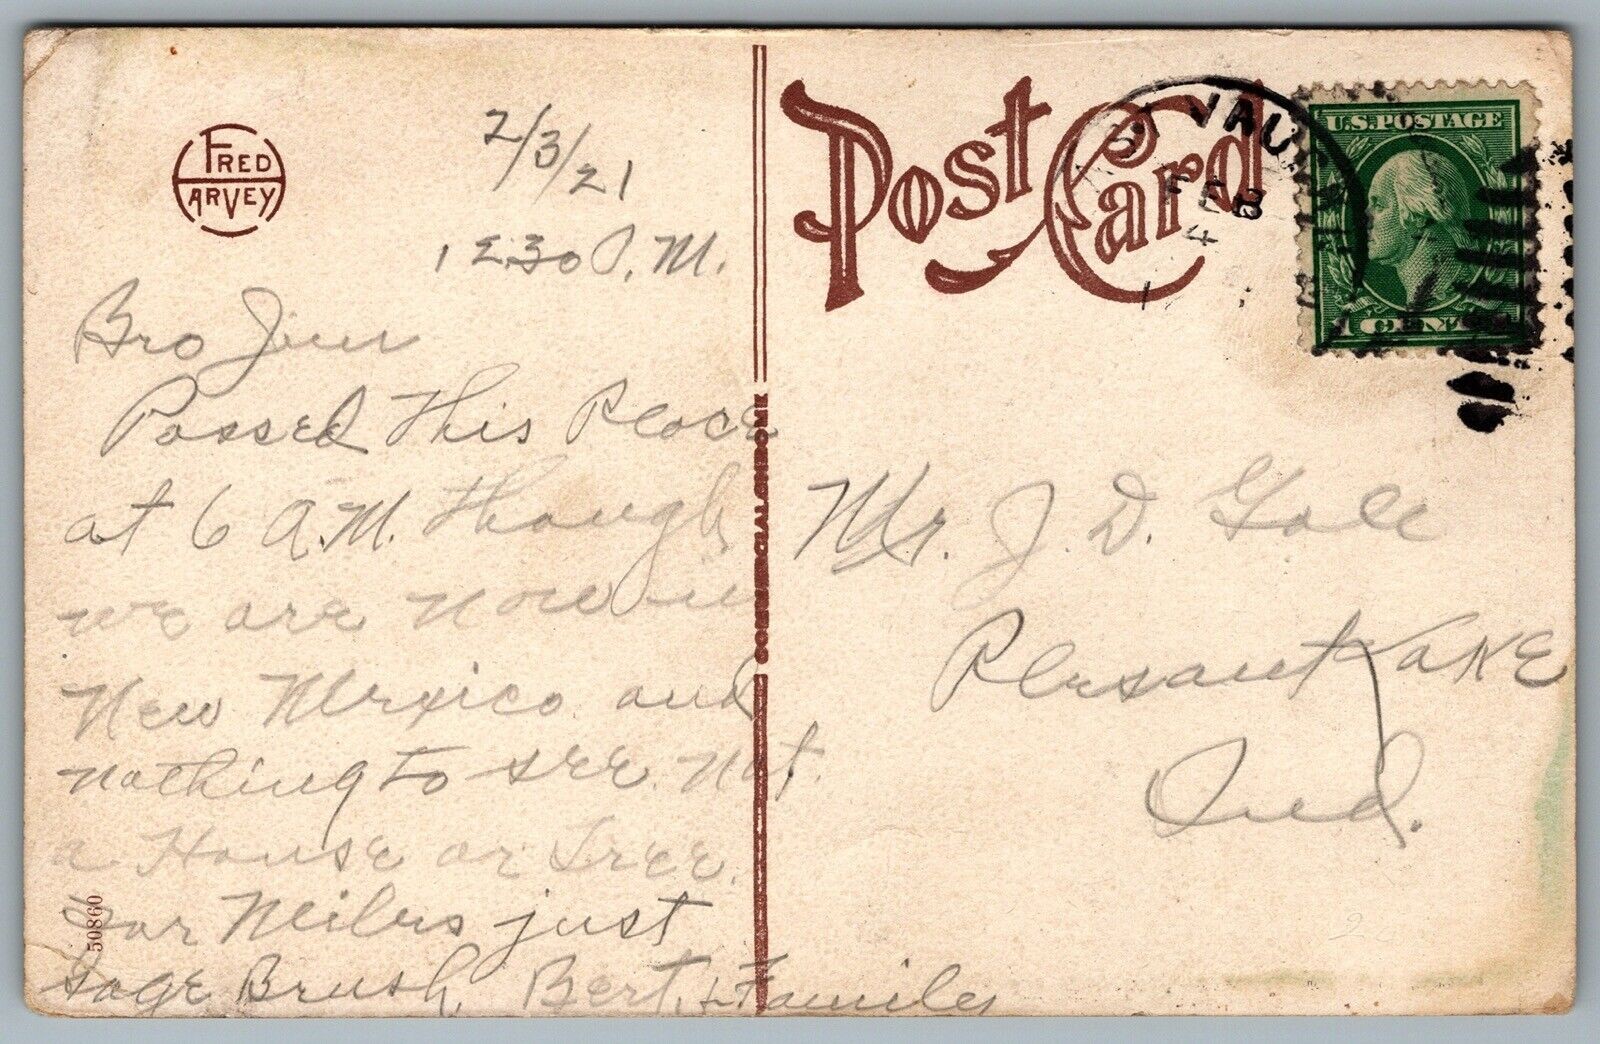 FRED
HARVEY
2/3/21
12:30 P.M.
Bro Jim
Passed This Place
at 6 A.M. though
we are now in
New Mexico and
nothing to see. Not
a House or Tree
for Miles just
Sage Brush. Bert. & Family
50860
Post Card
VAUGHN
FEB 3
4
U.S. POSTAGE
1 CENT 1
Mr. J. D. Gale
Plesant Lake
Ind.